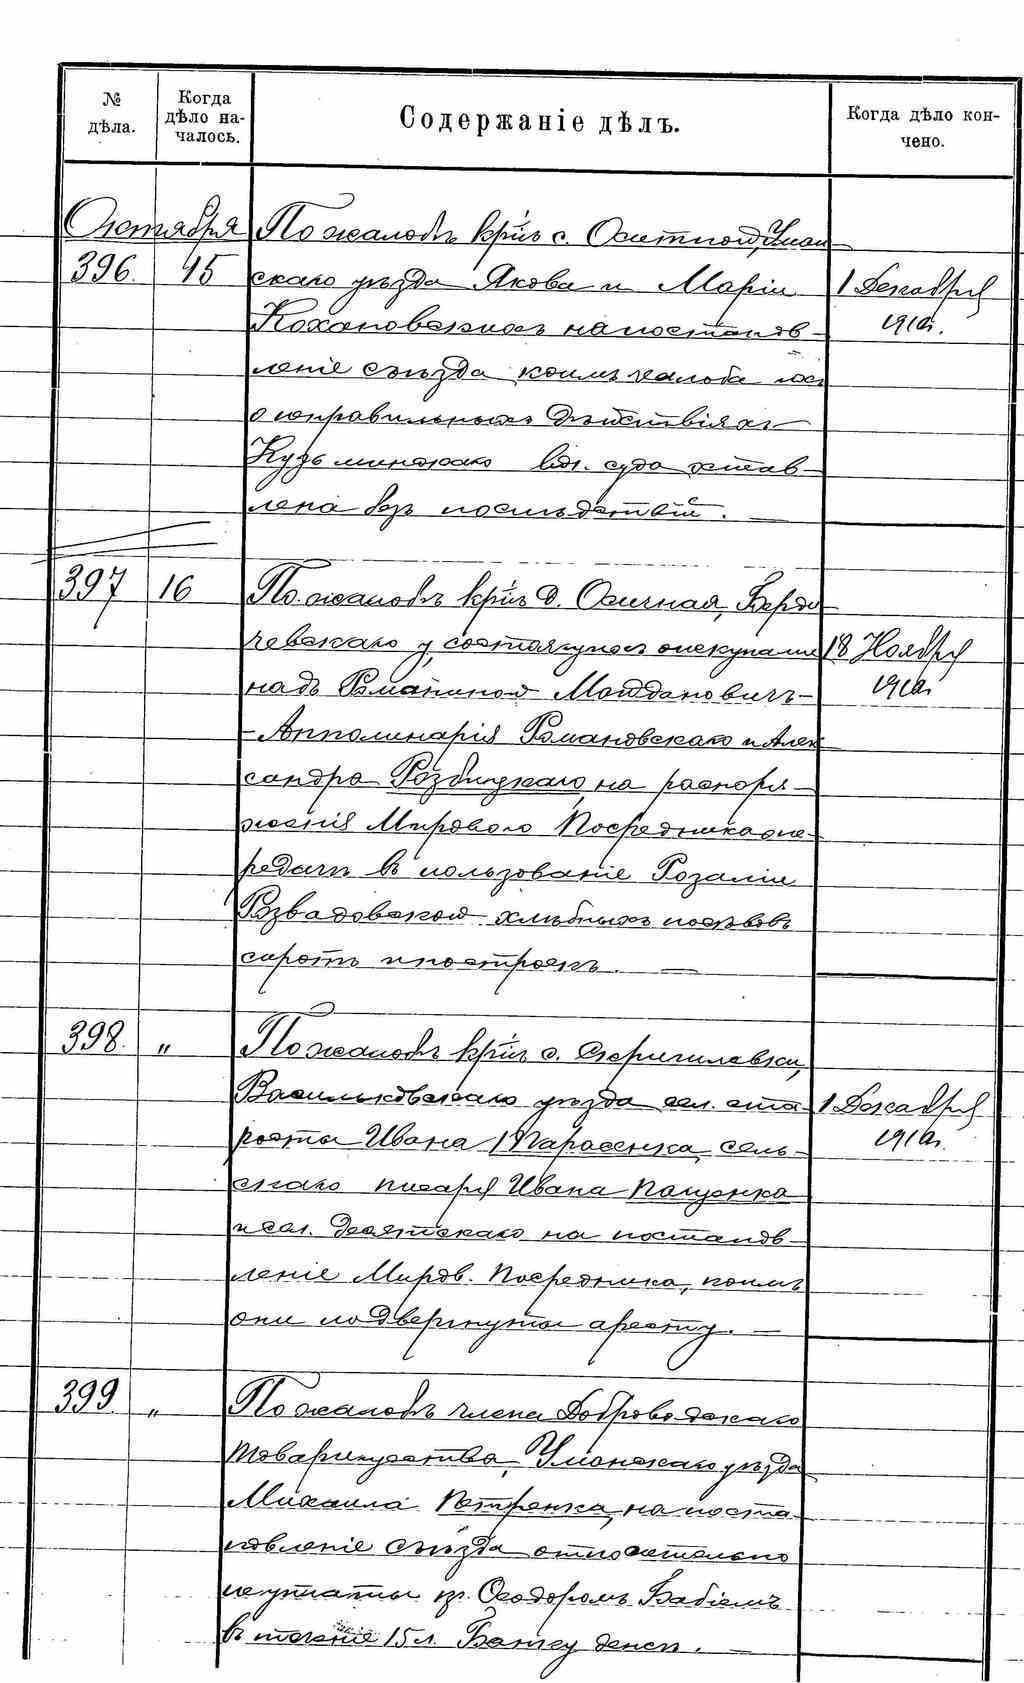 № дѣла.
Когда дѣло на-
чалось.
Содержаніе дѣлъ.
Когда дѣло кон-
чено.
Октября
По жалобѣ кр-нъ с. Оситной, Уман-
396. 15 скаго уѣзда Якова и Маріи 1 Декабря
Кохановскихъ на постанов- 1910г.
леніе съѣзда коимъ жалоба ихъ
о неправильныхъ дѣйствіяхъ
Кузьминскаго вол. суда остав-
лена безъ послѣдствій. —
397 16 По жалобѣ кр-нъ д. Осичная, Берди-
чевскаго у, состоящихъ опекунами 18 Ноября
надъ Романиной Мотдановичъ- 1910г.
-Апполинарія Романовскаго и Алек-
сандра Розбицкаго, на распоря-
женія Мирового Посредника о пе-
редачи въ пользованіе Розаліи
Розвадовской хлѣбныхъ посѣвовъ
сиротъ и построекъ. —
398. „ По жалобѣ кр-нъ с.
Васильковскаго уѣзда сел. ста- 1 Декабря
росты Ивана Тарасенка, сель- 1910г.
скаго писаря Ивана Пащенка
и сел. Десятскаго на постанов-
леніе Миров. Посредника, коимъ
они подвергнуты аресту. —
399. „ По жалобѣ члена Доброводскаго
товарищества, Уманскаго уѣзда
Михаила Петренка, на поста-
новленіе съѣзда относительно
неуплаты кр. Ѳеодоромъ Бабіемъ
въ теченіе 15 л. Банку денегъ. —